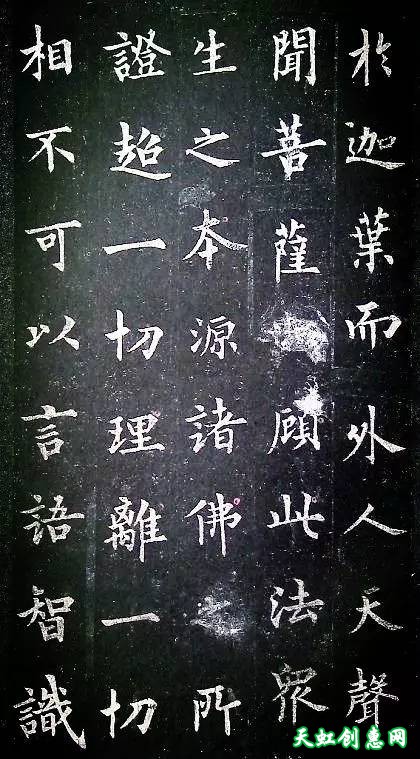 於迦葉而外人天聲
聞菩薩顧此法衆
生之本源諸佛之所
證超一切理離一切
相不可以言語智識
天虹创意网